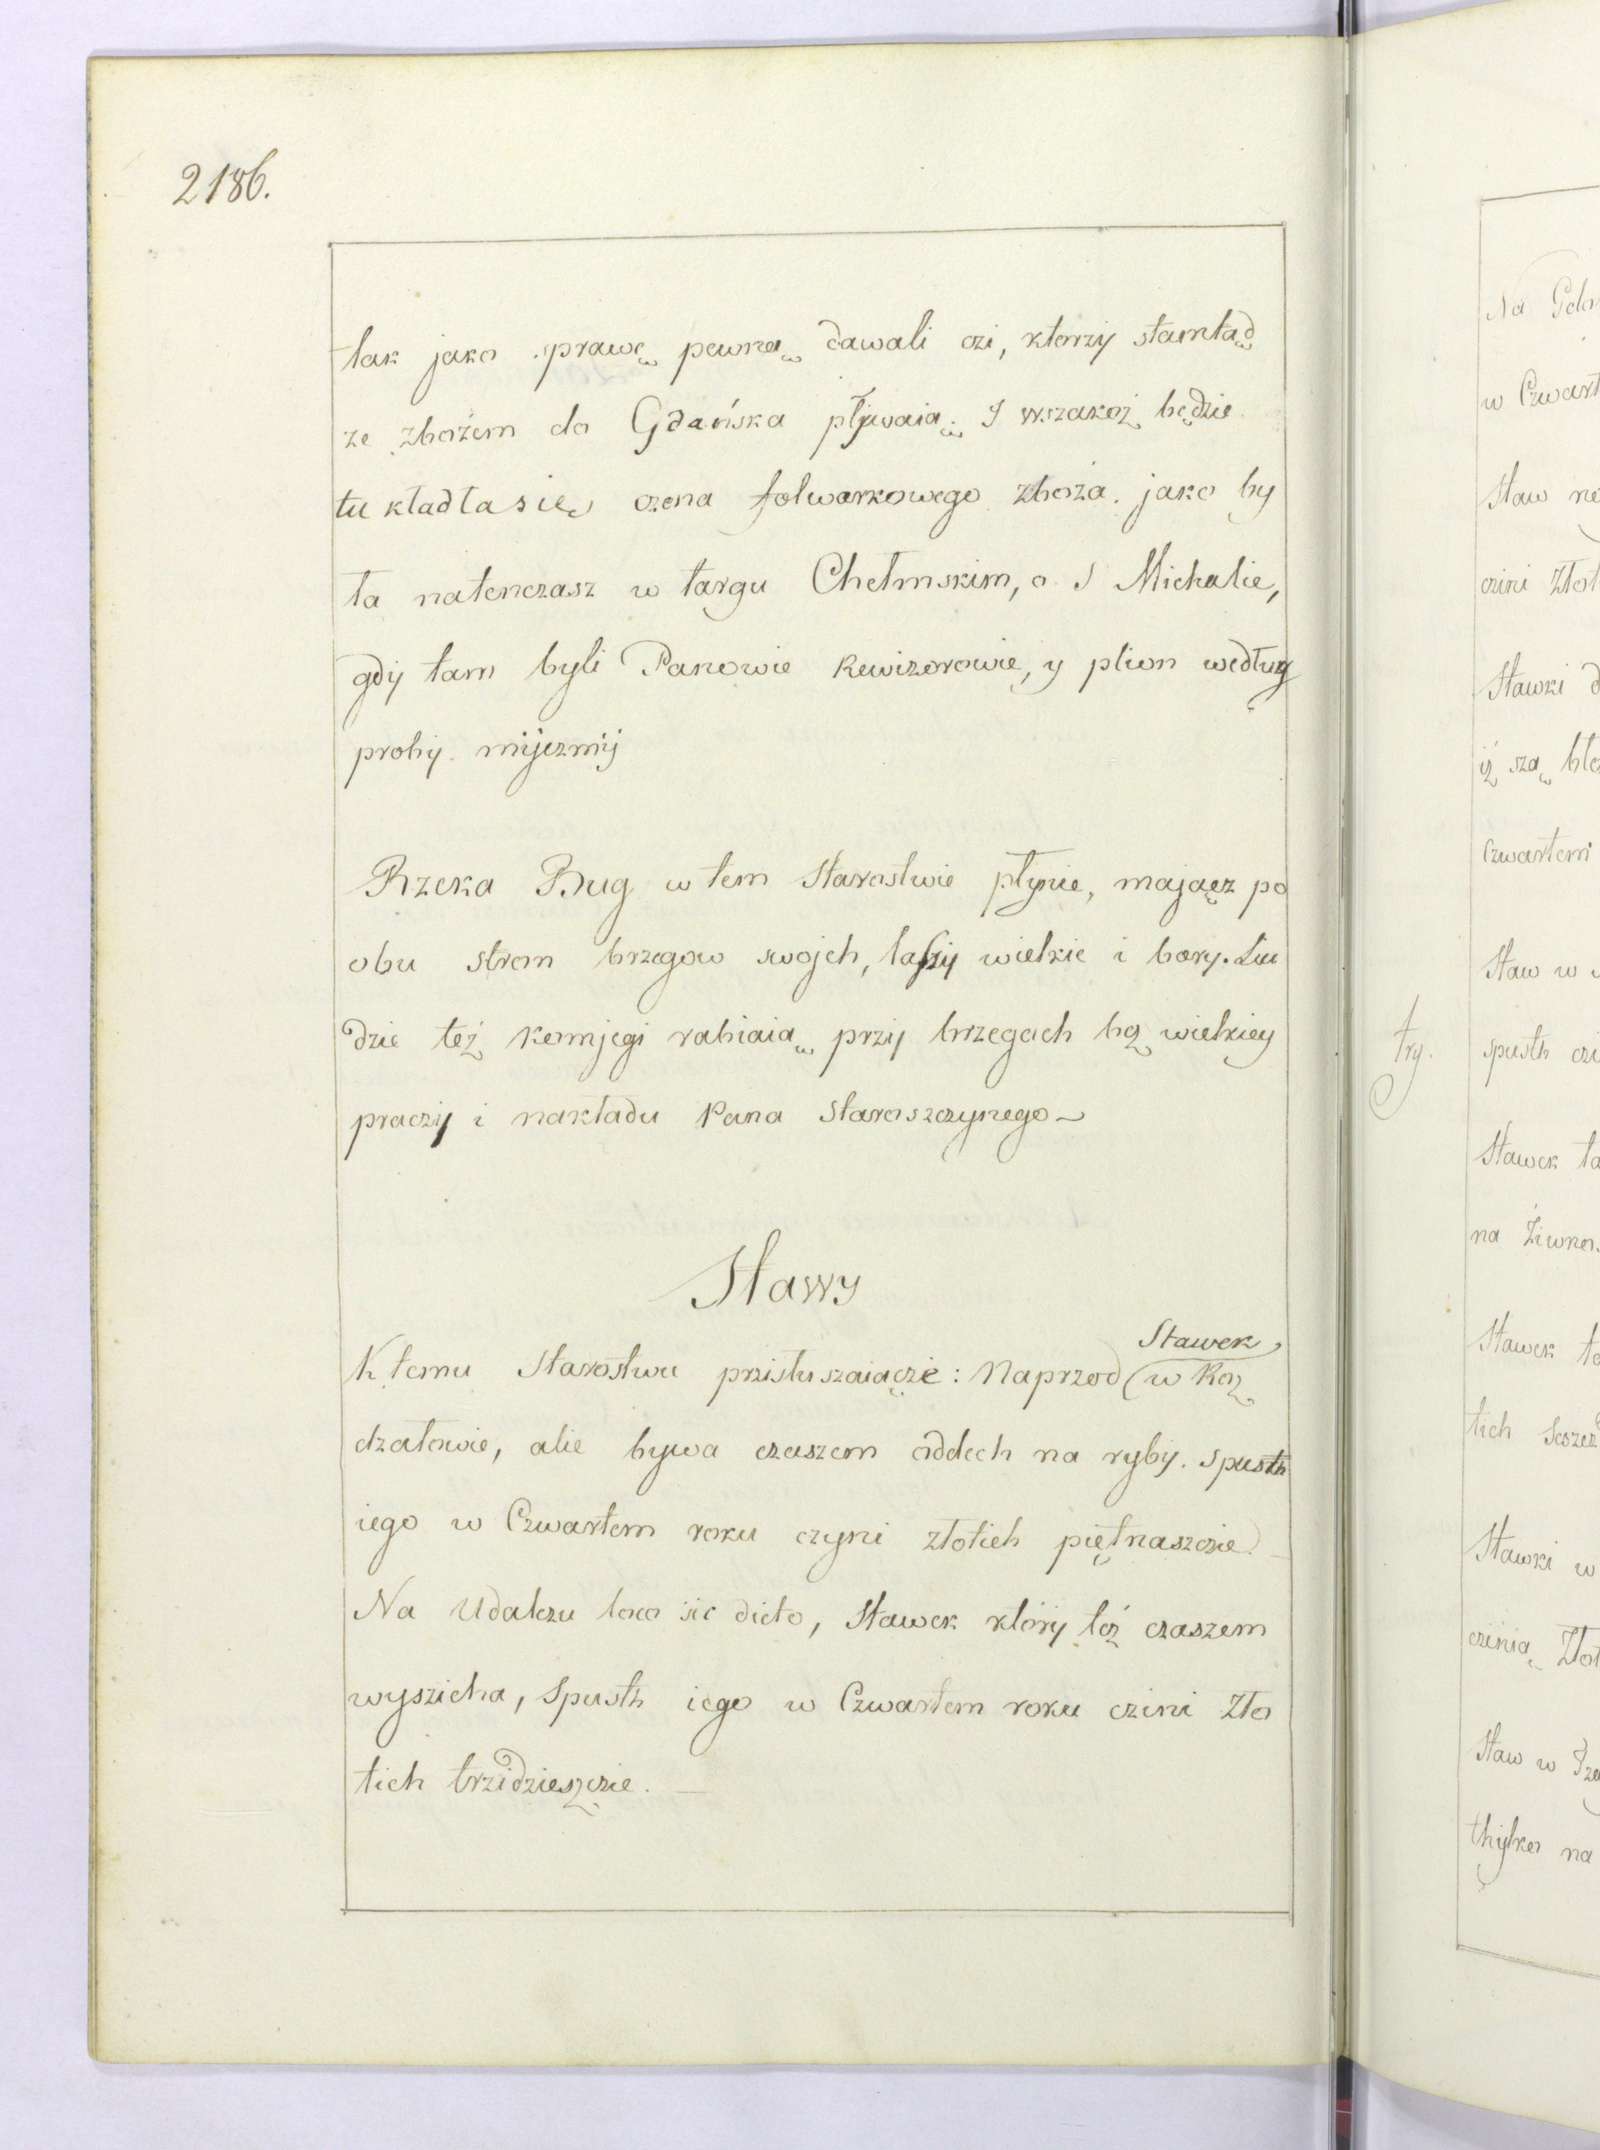 2186.
tak jako sprawę pewną dawali czi, ktorzy stamtąd
ze zbożem do Gdańska pływaią. I wszakoż będzie
tu kładła się czena folwarkowego zboża jako by
ła natenczasz w targu Chełmskim, o S Michalie,
gdy tam byli Panowie Rewizorowie, y plion według
proby
Rzeka Bug w tem Starostwie płynie, mająncz po
obu stron brzegow swojch, laszy wielkie i bory. Lu
dzie też Komjegi rabiaią przy brzegach bez wielkiey
praczy i nakładu Pana Staroszczynego
Stawy
K temu Starostwu przistuszaiączie: Naprzod (Stawek w Koz
dzałowie, alie bywa czaszem oddech na ryby. Spusth
iego w Czwartem roku czyni złotich piętnaszczie.
Na Udalczu loco sic dicto, Stawek który też czaszem
wyszicha, Spusth iego w Czwartem roku czini Zło
tich trzidzieszczie.
try.
Na
w Czwart
Staw
czini Złot
Stawki d
iż szą
Czwartem
Staw w
spusth
Stawek
na
Stawek
tich
Stawki w
czinią Złot
Staw w
thylko na